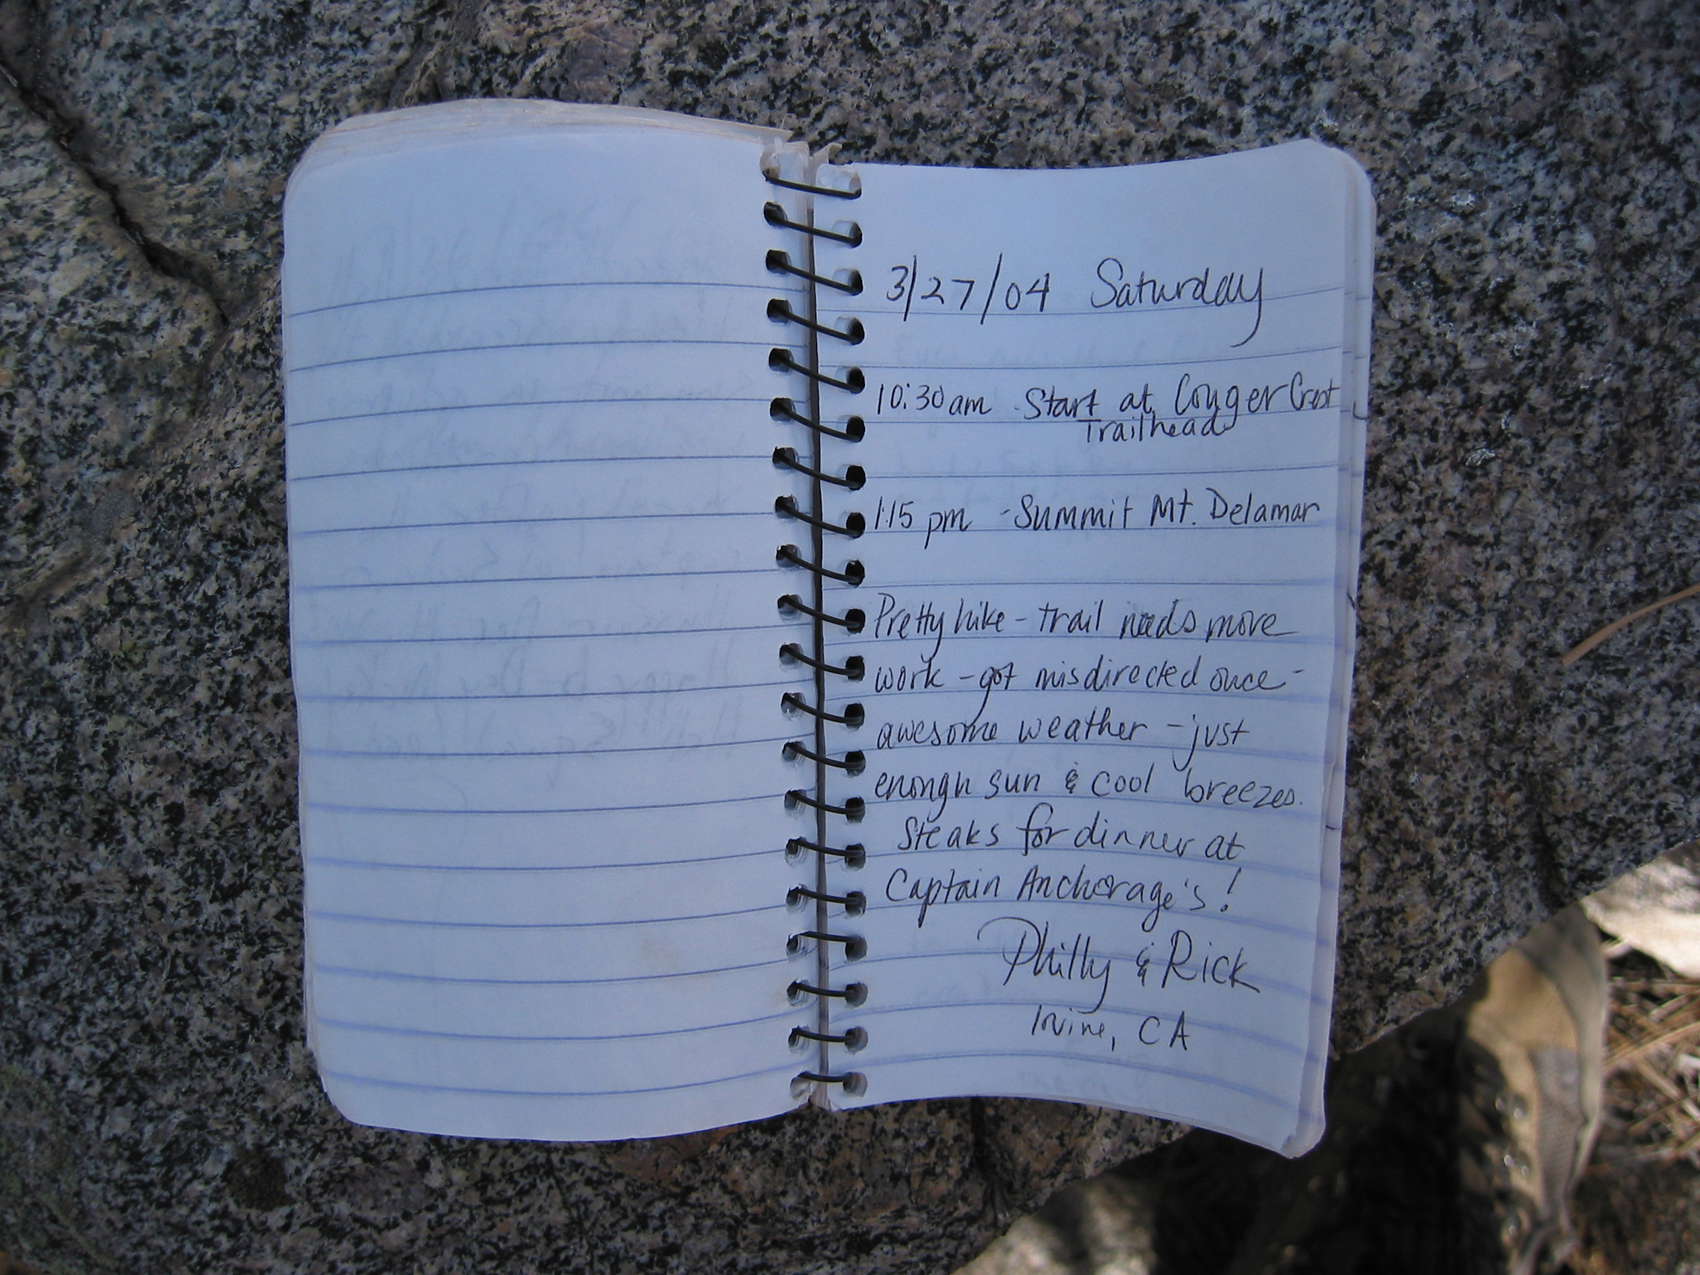 3/27/04 Saturday
10:30am - Start at Couger Crest
Trailhead
1:15 pm - Summit Mt. Delamar
Pretty hike - trail needs more
work - got misdirected once -
awesome weather - just
enough sun & cool breezes.
Steaks for dinner at
Captain Anchorage's!
Philly & Rick
Irvine, CA